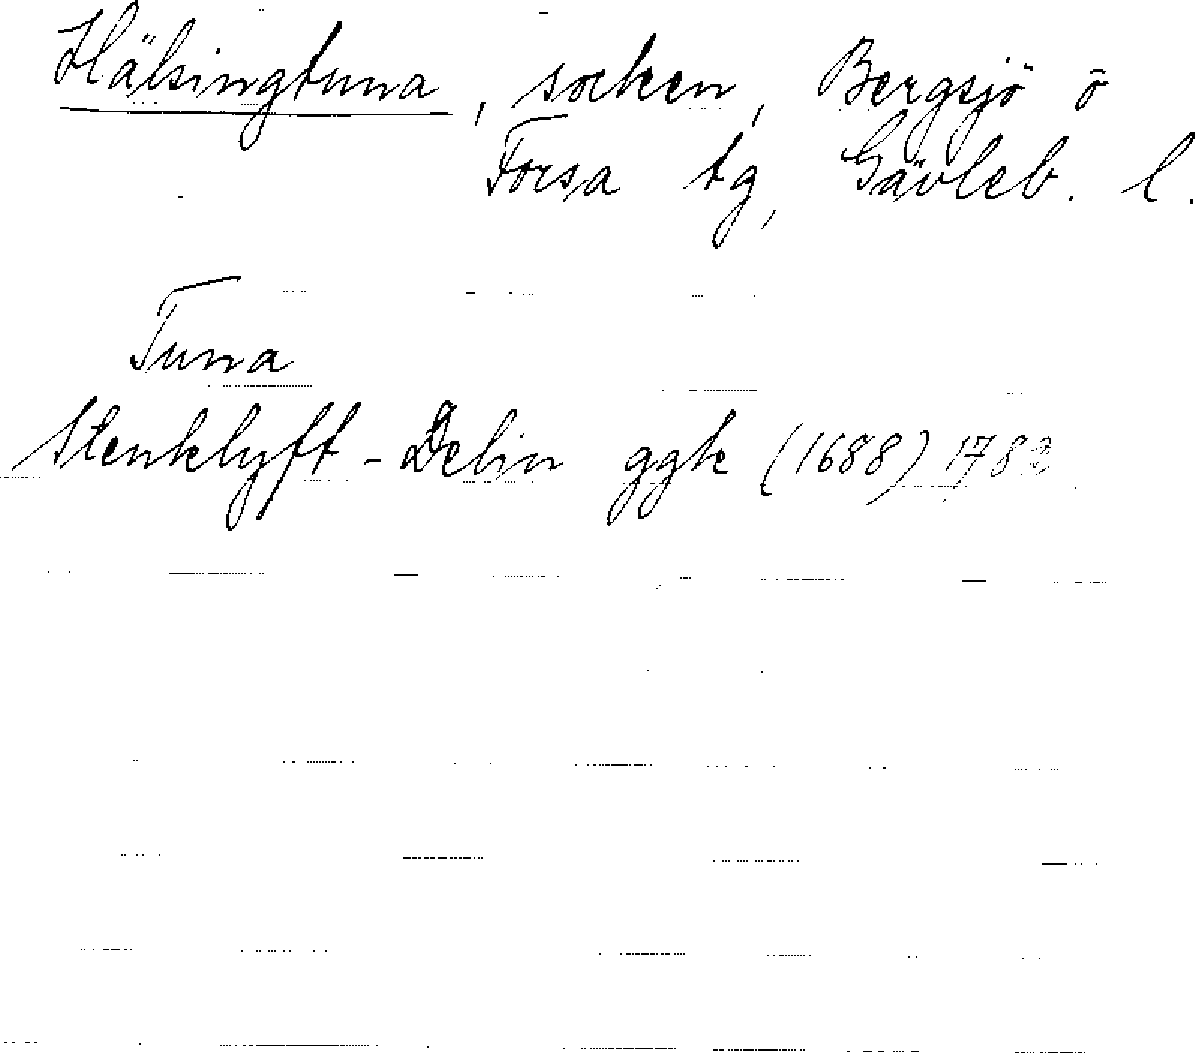 Hälsingtuna, socken, Bergsjö o
Forsa tg, Gävleb. l.
Tuna
Stenklyft-Delin ggk (1688) 1782